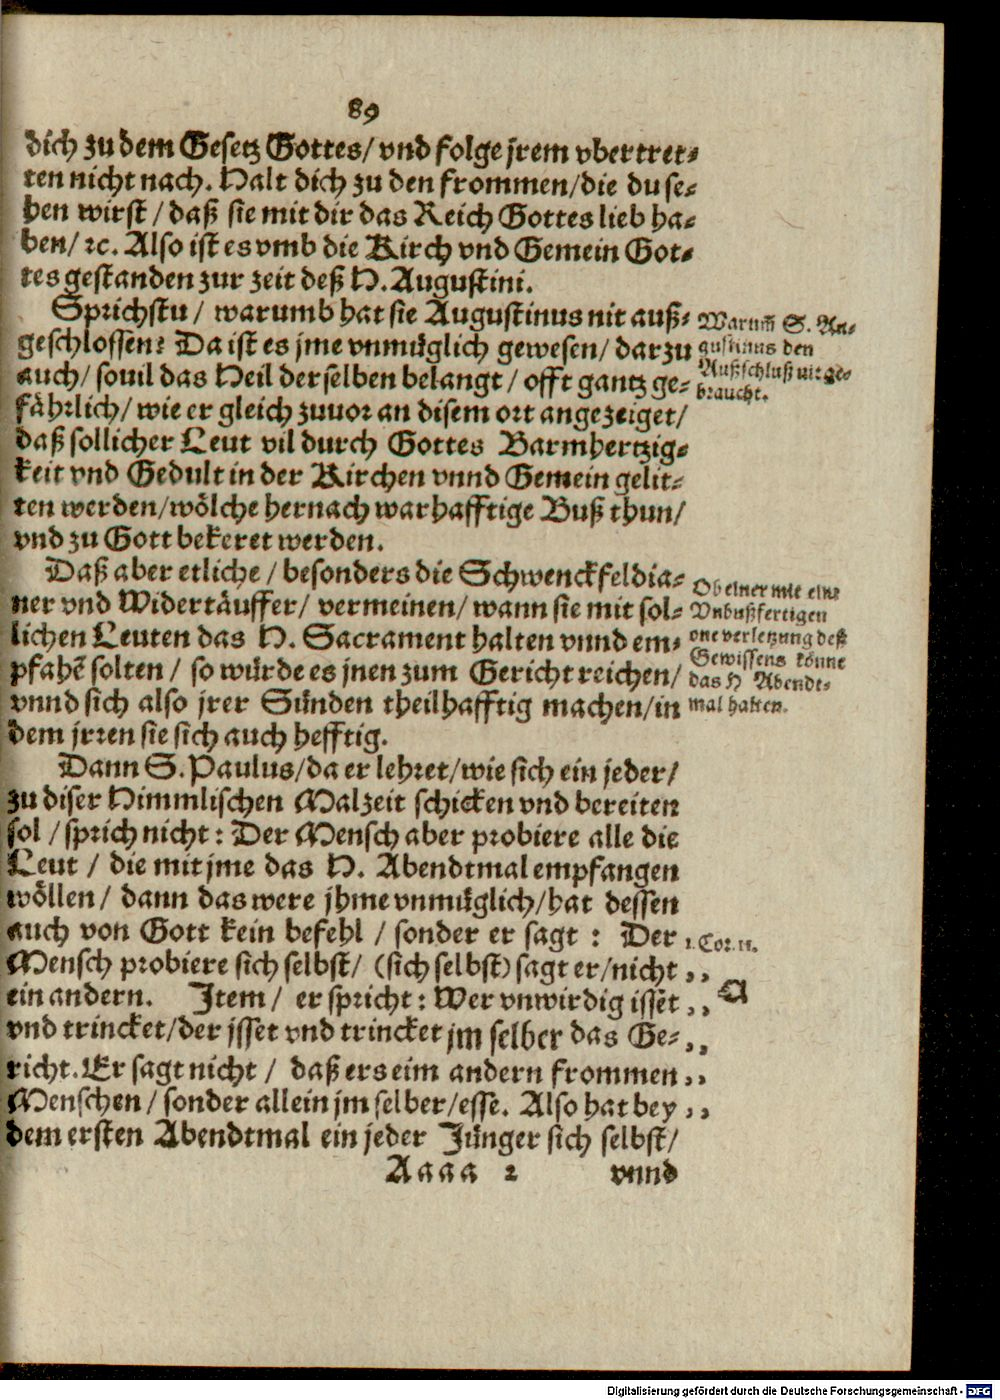 89
dich zu dem Gesetz Gottes/ vnd folge jrem vbertret⸗
ten nicht nach. Halt dich zu den frommen/die du se⸗
hen wirst/ daß sie mit dir das Reich Gottes lieb ha⸗
ben/ ꝛc. Also ist es vmb die Kirch vnd Gemein Got⸗
tes gestanden zur zeit deß H. Augustini.
Sprichstu/ warumb hat sie Augustinus nit auß⸗
geschlossen? Da ist es jme vnmüglich gewesen/ darzu
auch/ souil das Heil derselben belangt/ offt gantz ge⸗
fährlich/ wie er gleich zuvor an disem ort angezeiget/
daß sollicher Leut vil durch Gottes Barmhertzig⸗
keit vnd Gedult in der Kirchen vnnd Gemein gelit⸗
ten werden/wölche hernach warhafftige Buß thun/
vnd zu Gott bekeret werden.
Warum̃ S. Au⸗
gustinus den
Außschluß nit ge⸗
braucht.
Daß aber etliche/ besonders die Schwenckfeldia⸗
ner vnd Widertäuffer/ vermeinen/ wann sie mit sol⸗
lichen Leuten das H. Sacrament halten vnnd em⸗
pfahẽ solten/ so würde es jnen zum Gericht reichen/
vnnd sich also jrer Sünden theilhafftig machen/in
dem jrren sie sich auch hefftig.
Ob einer mit eim
Vnbußfertigen
one verletzung deß
Gewissens könne
das H Abendt⸗
mal halten.
Dann S. Paulus/da er lehret/wie sich ein jeder/
zu diser Himmlischen Malzeit schicken vnd bereiten
sol/sprich nicht: Der Mensch aber probiere alle die
Leut/ die mit jme das H. Abendtmal empfangen
wöllen/ dann das were jhme vnmüglich/hat dessen
auch von Gott kein befehl/ sonder er sagt: Der
Mensch probiere sich selbst/ (sich selbst) sagt er/nicht ,,
ein andern. Item/ er spricht: Wer vnwirdig isset ,,
vnd trincket/der jsset vnd trincket jm selber das Ge⸗ ,,
richt. Er sagt nicht/ daß ers eim andern frommen ,,
Menschen/ sonder allein jm selber/esse. Also hat bey ,,
dem ersten Abendtmal ein jeder Jünger sich selbst/
1. Cor. 11.
Aaaa 2 vnnd
Digitalisierung gefördert durch die Deutsche Forschungsgemeinschaft - DFG